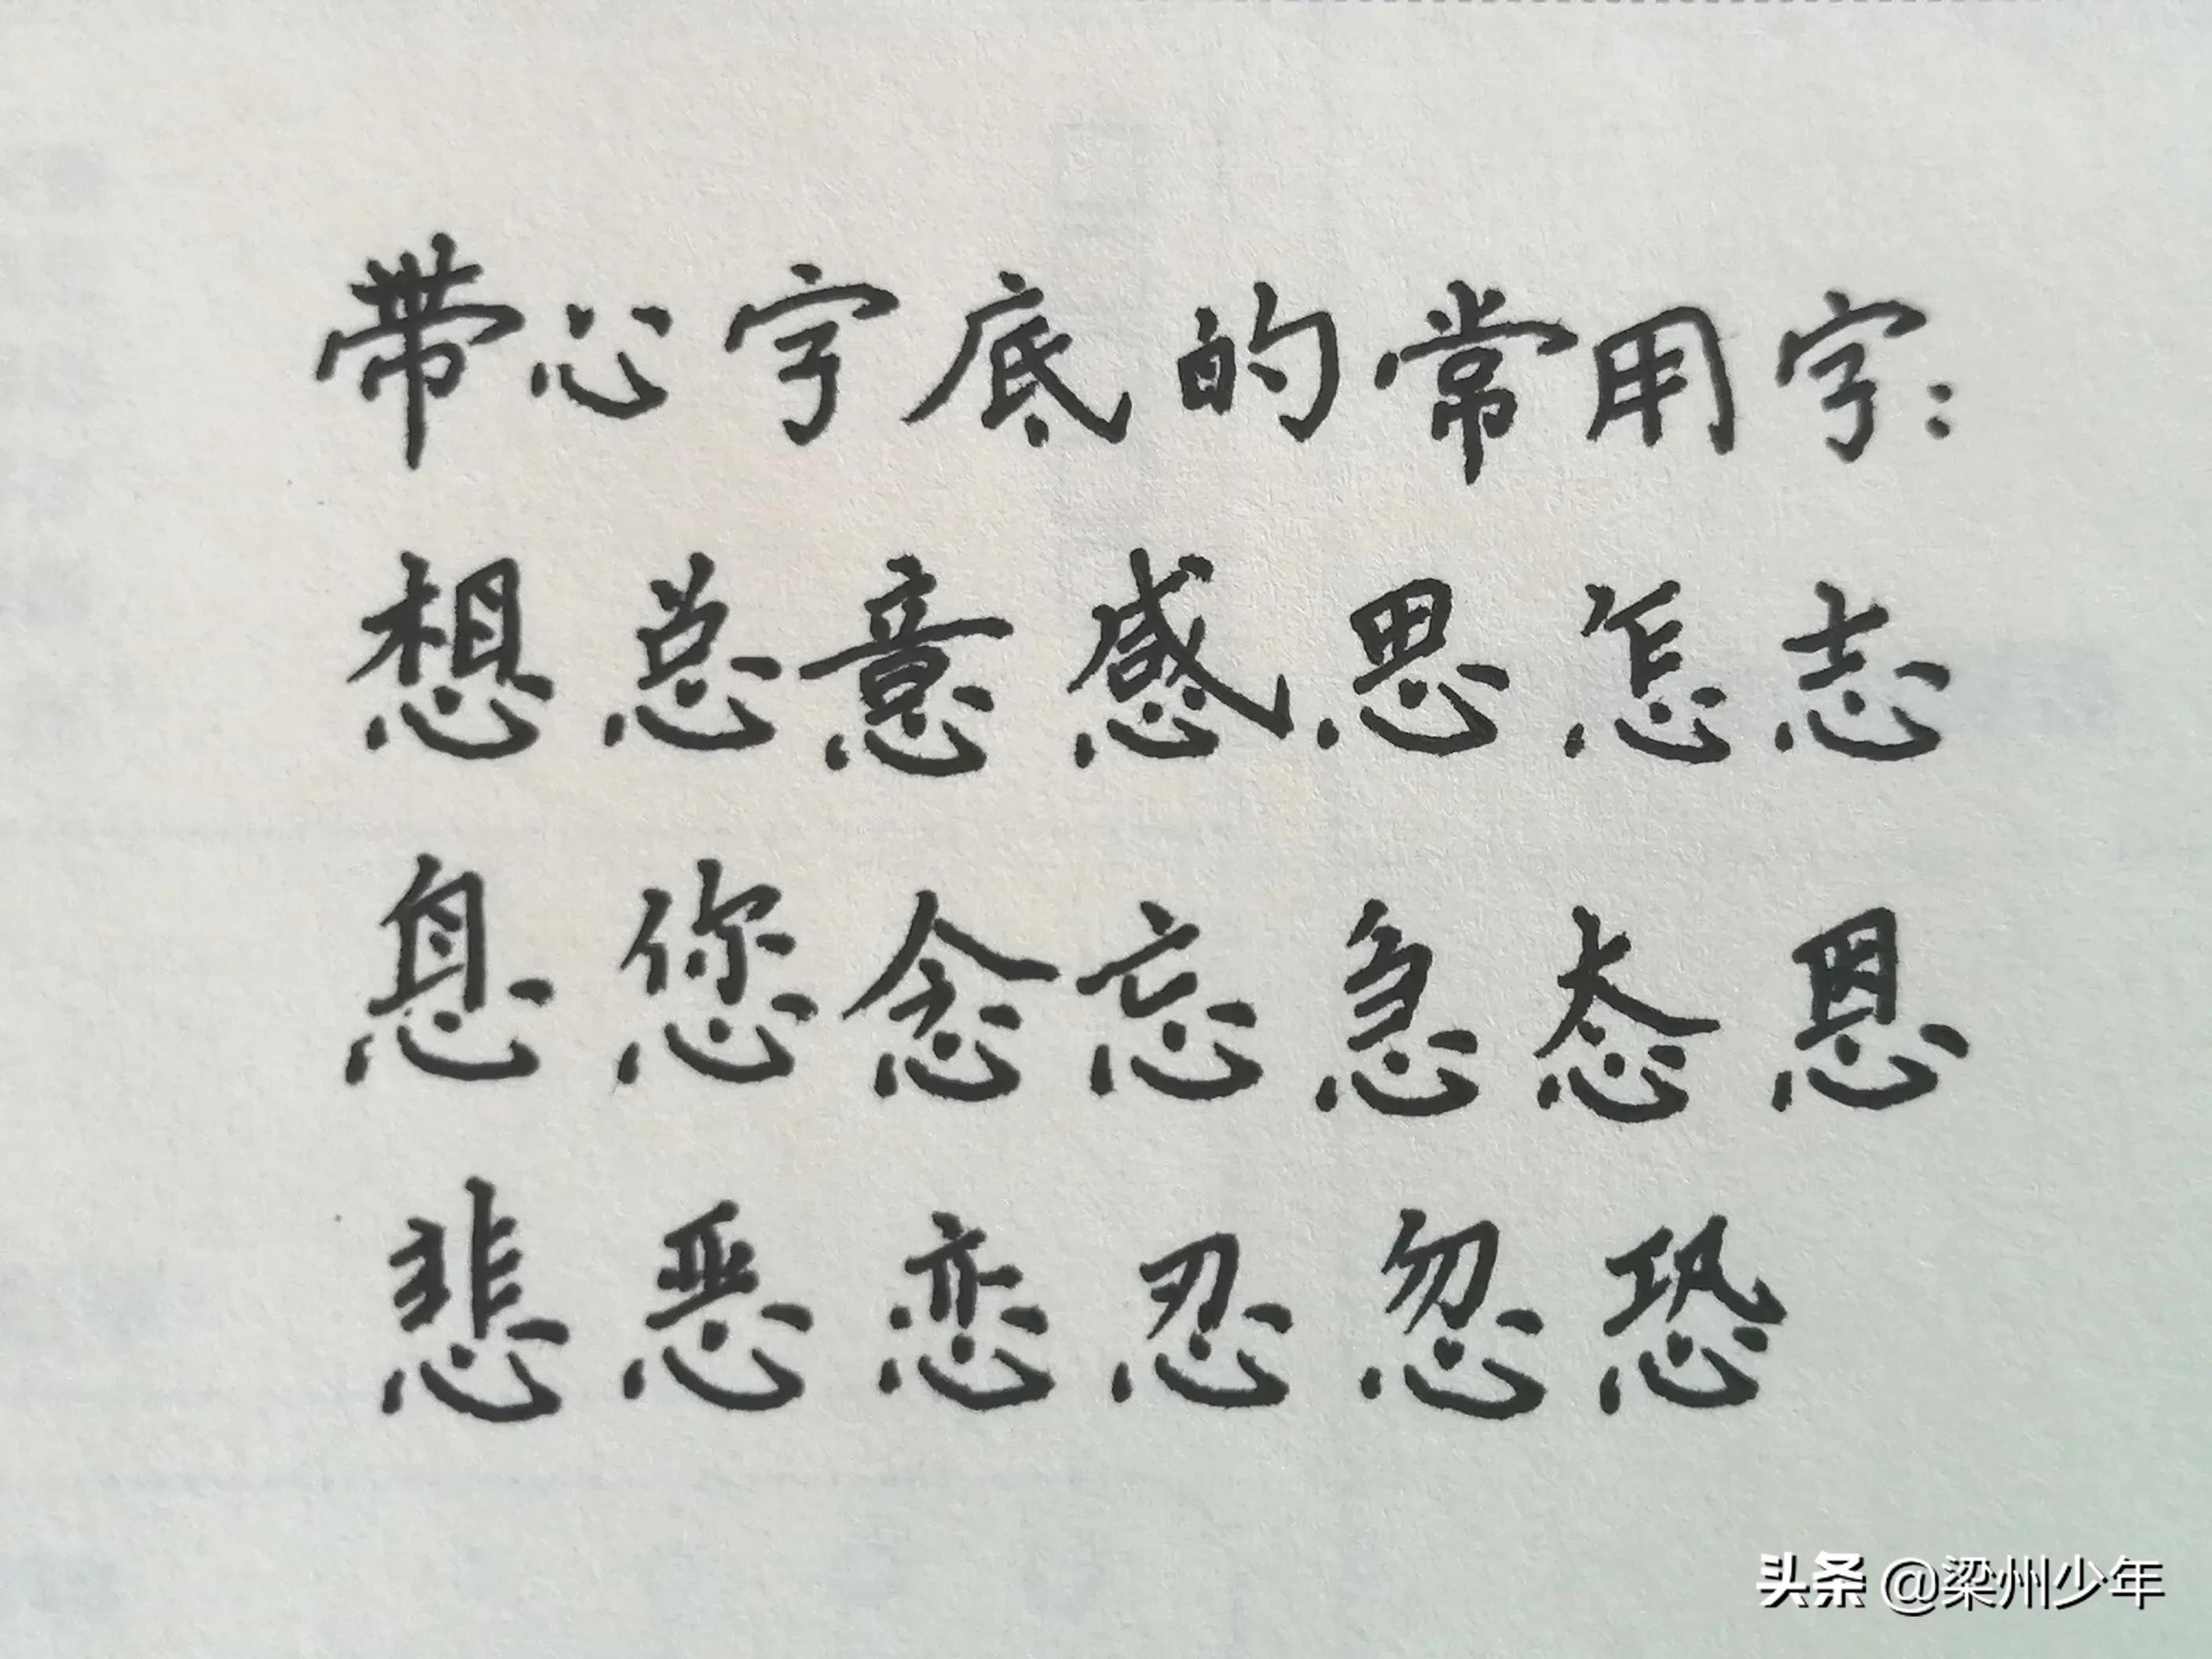 带心字底的常用字:
想总意感思怎志
息您念忘急态恩
悲恶恋忍忽恐
头条 @梁州少年